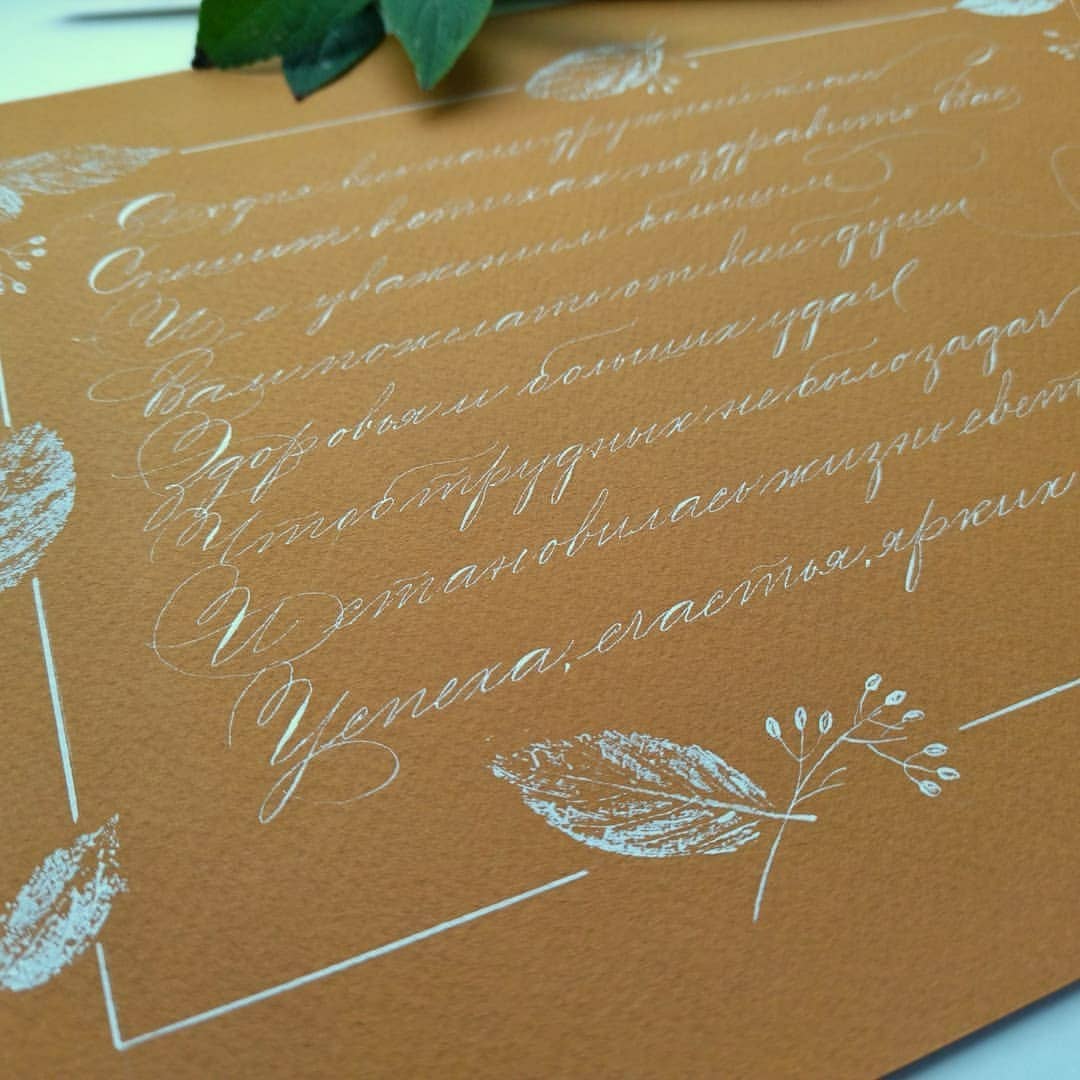 Сегодня весь наш дружный класс
Спешит в стихах поздравить Вас
И с уважением большим
Вам пожелать от всей души
Здоровья и больших удач
И чтоб трудных не было задач
И становилась жизнь
Успеха, счастья, ярких